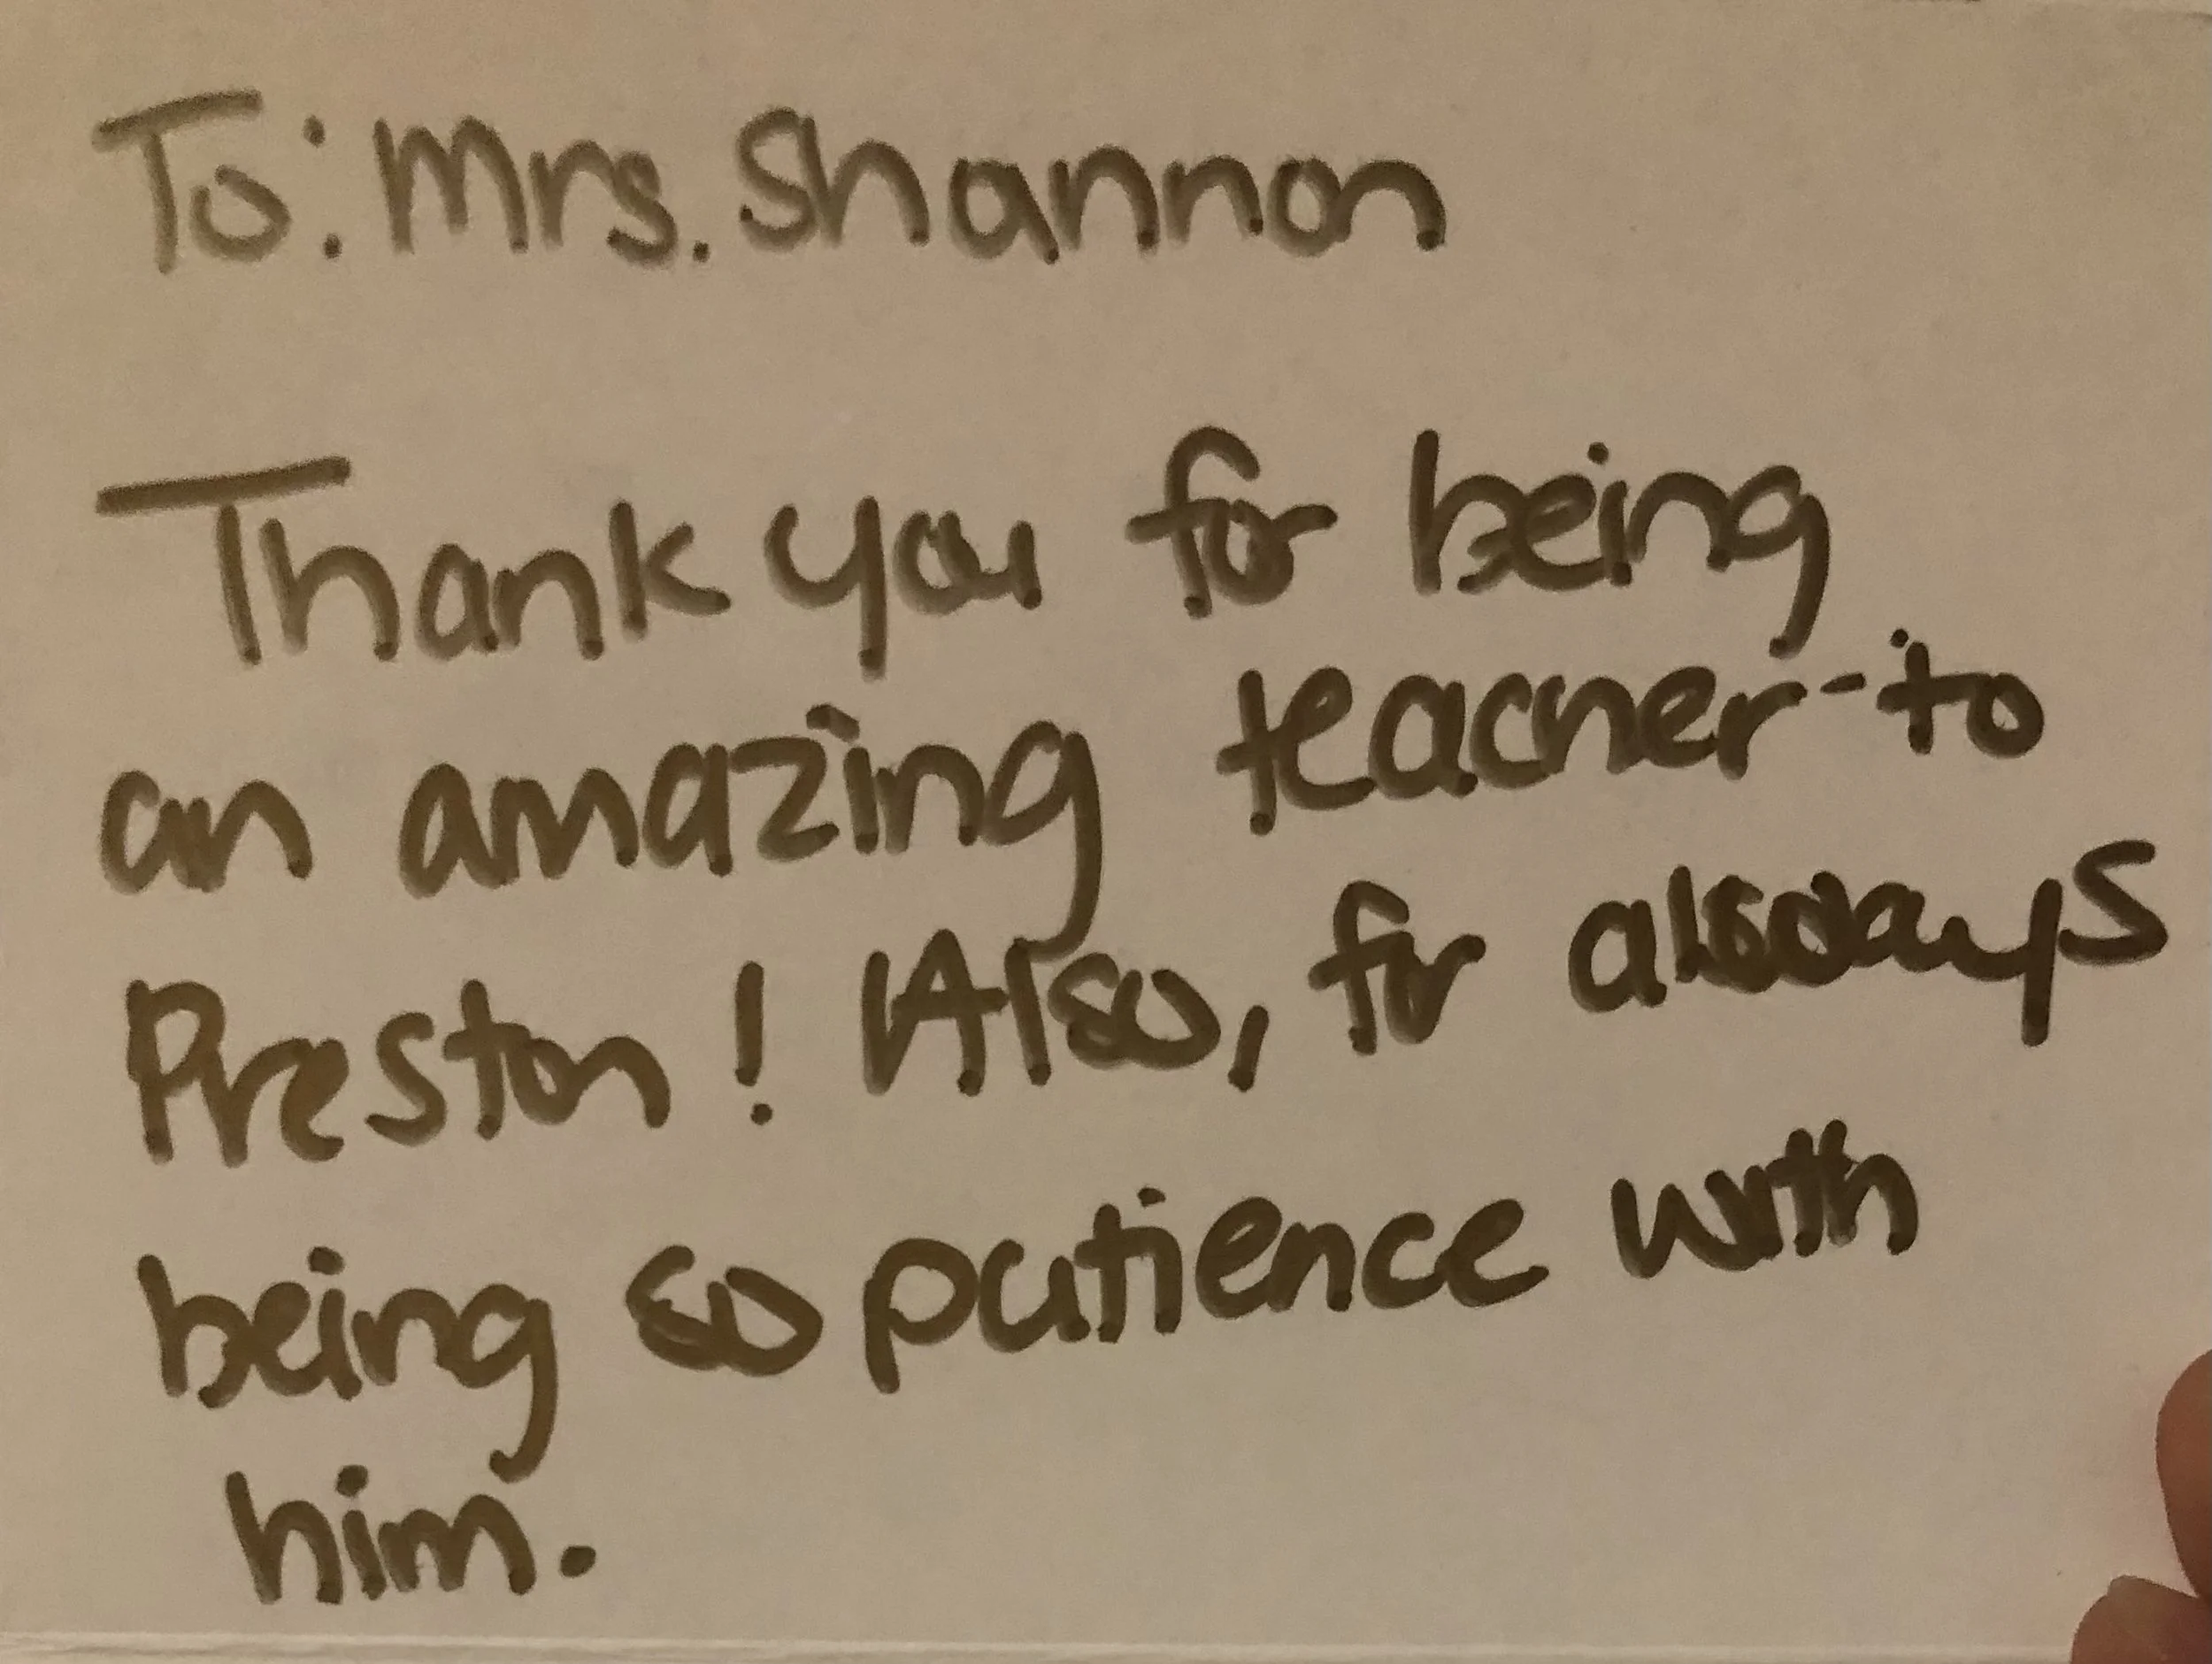 To: Mrs. Shannon
Thank you for being
an amazing teacher to
Preston! Also, for always
being so patience with
him.